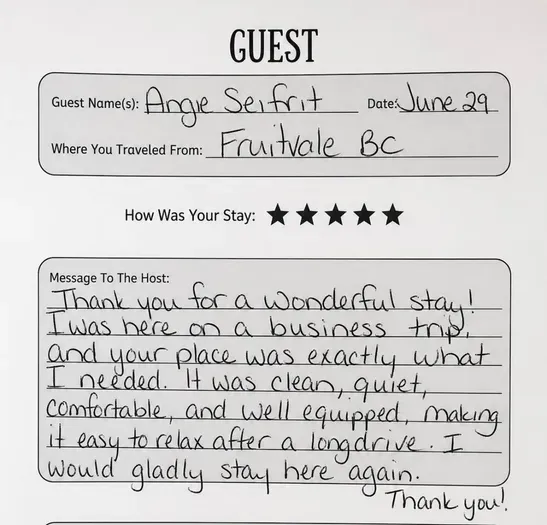 GUEST
Guest Name(s): Angie Seifrit Date: June 29
Where You Traveled From: Fruitvale BC
How Was Your Stay: ★ ★ ★ ★ ★
Message To The Host:
Thank you for a wonderful stay!
I was here on a business trip,
and your place was exactly what
I needed. It was clean, quiet,
comfortable, and well equipped, making
it easy to relax after a long drive. I
would gladly stay here again.
Thank you!